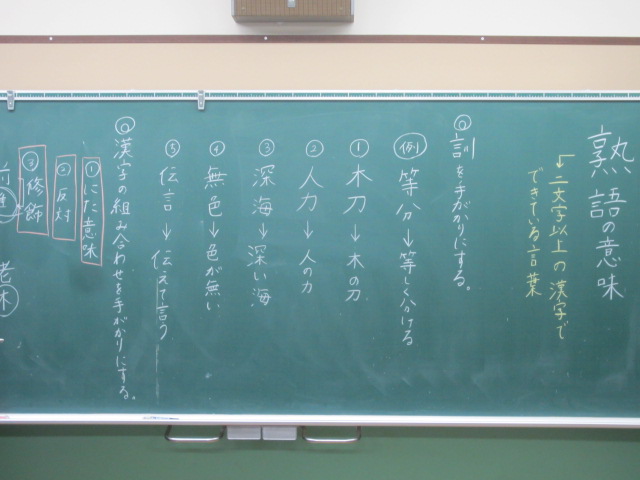 熟語の意味
↓二文字以上の漢字で
できている言葉
◎訓を手がかりにする。
例 等分→等しく分ける
① 木刀→木の刀
② 人力→人の力
③ 深海→深い海
④ 無色→色が無い
⑤ 伝言→伝えて言う
◎漢字の組み合わせを手がかりにする。
①にた意味
②反対
③修飾